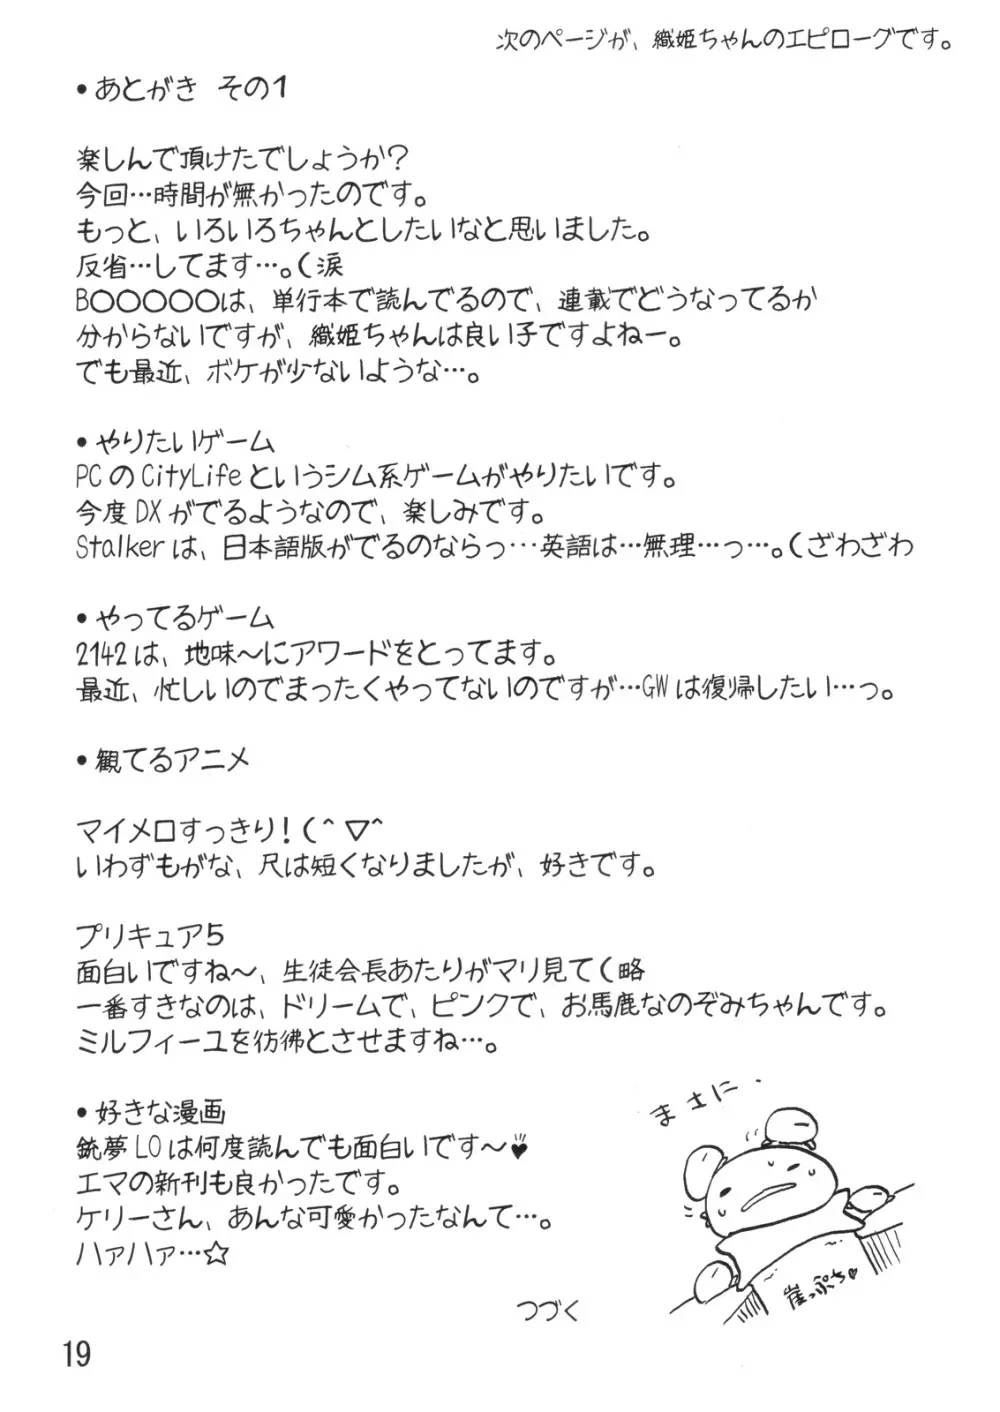 次のページが、織姫ちゃんのエピローグです。
•あとがき その1
楽しんで頂けたでしょうか?
今回…時間が無かったのです。
もっと、いろいろちゃんとしたいなと思いました。
反省…してます…。(涙
B○○○○○は、単行本で読んでるので、連載でどうなってるか
分からないですが、織姫ちゃんは良い子ですよねー。
でも最近、ボケが少ないような…。
•やりたいゲーム
PCのCityLifeというシム系ゲームがやりたいです。
今度DXがでるようなので、楽しみです。
Stalkerは、日本語版がでるのならっ…英語は…無理…っ…。(ざわざわ
•やってるゲーム
2142は、地味~にアワードをとってます。
最近、忙しいのでまったくやってないのですが…GWは復帰したい…っ。
•観てるアニメ
マイメロすっきり!(^▽^
いわずもがな、尺は短くなりましたが、好きです。
プリキュア5
面白いですね~、生徒会長あたりがマリ見て(略
一番すきなのは、ドリームで、ピンクで、お馬鹿なのぞみちゃんです。
ミルフィーユを彷彿とさせますね…。
•好きな漫画
銃夢LOは何度読んでも面白いです~♥
エマの新刊も良かったです。
ケリーさん、あんな可愛かったなんて…。
ハァハァ…☆
まさに・
崖っぷち♥
つづく
19